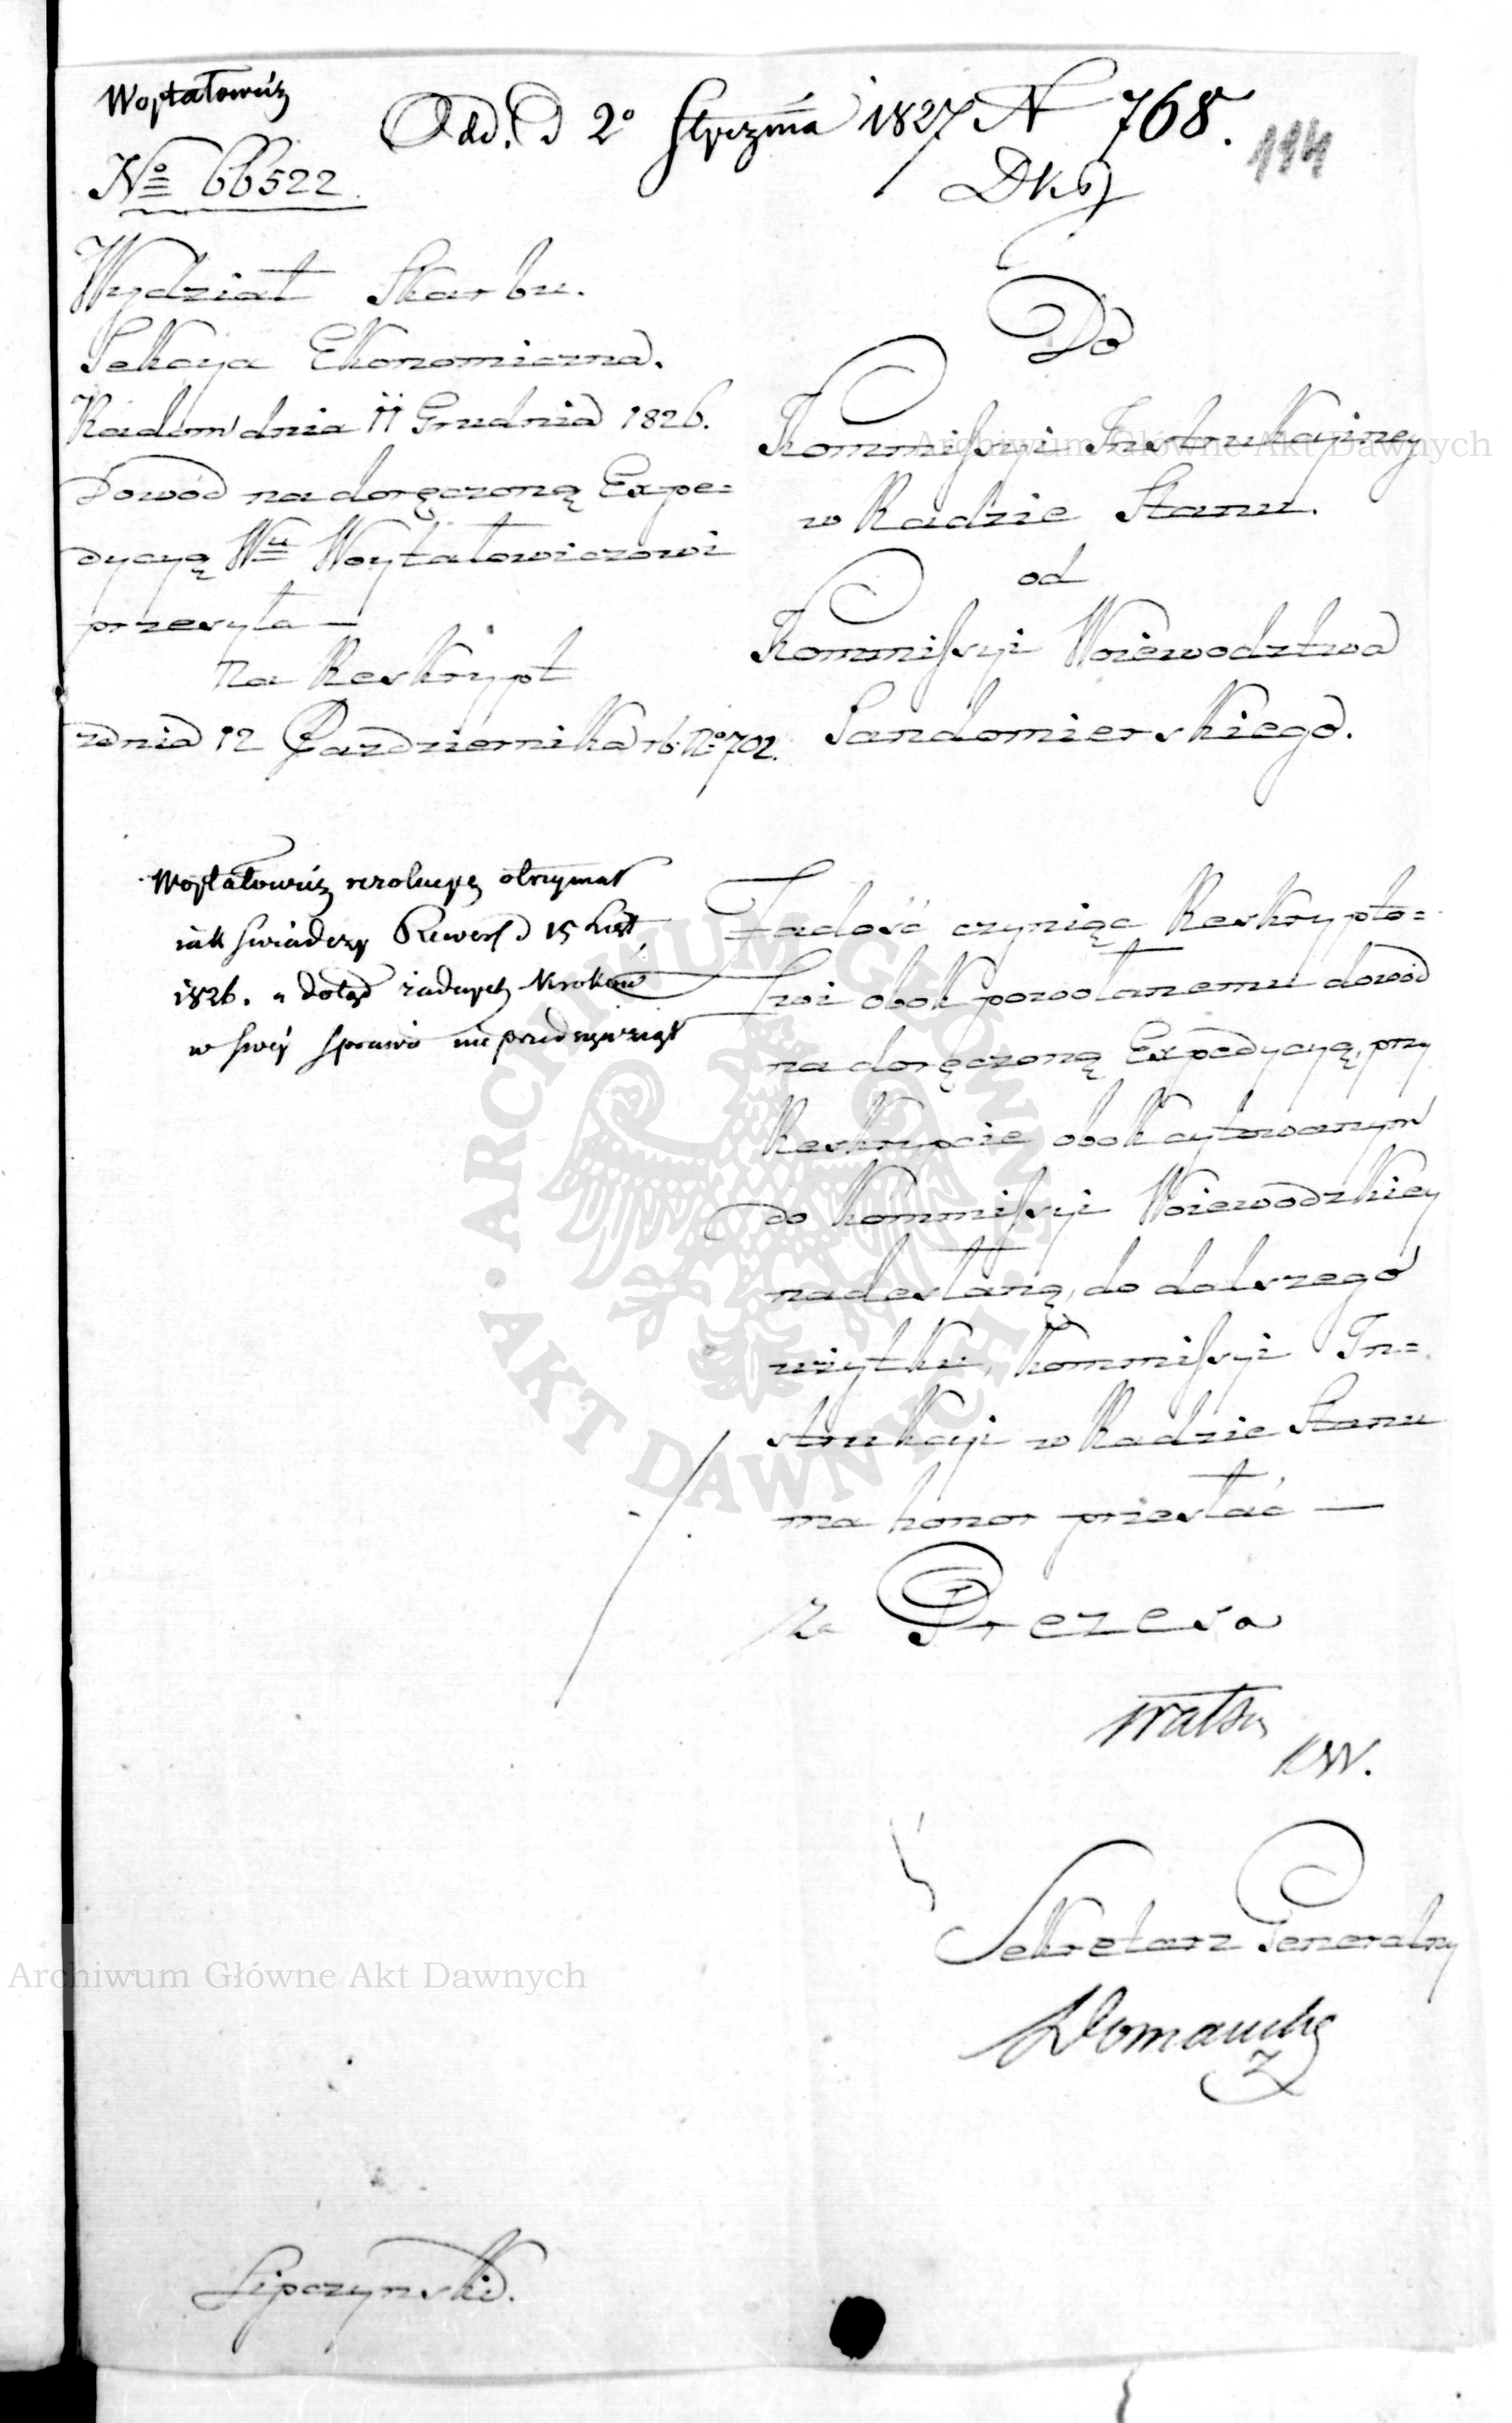 Woytałowicz
Odd. d 2º Stycznia 1827 N 768.
114
Nº 66522.
DKS
Wydział Skarbu.
Sekcya Ekonomiczna.
Radom dnia 11 Grudnia 1826.
Dowód na doręczoną Expe=
dycyą Wu Woytałowiczowi
przesyła —
Na Reskrypt
z dnia 12 Października rb. Nº 702.
Do
Kommissyi Instrukcyiney
w Radzie Stanu.
od
Kommissyi Woiewodztwa
Sandomierskiego.
Woytałowicz rezolucyę otrzymał
iak świadczy Rewers d 15 List.
1826. a dotąd żadnych kroków
w swey sprawie nie przedsięwziął
Zadość czyniąc Reskrypto=
wi obok powołanemu dowód
na doręczoną Expedycyą, przy
Reskrypcie obok cytowanym
do Kommissyi Woiewodzkiey
nadesłaną, do dalszego
użytku, Kommissyi In=
strukcyi w Radzie Stanu
ma honor przesłać —
Za Prezesa
KW.
Sekretarz Generalny
Domański
Lipczynski.
Archiwum Główne Akt Dawnych
ARCHIWUM GŁÓWNE
AKT DAWNYCH
Archiwum Główne Akt Dawnych